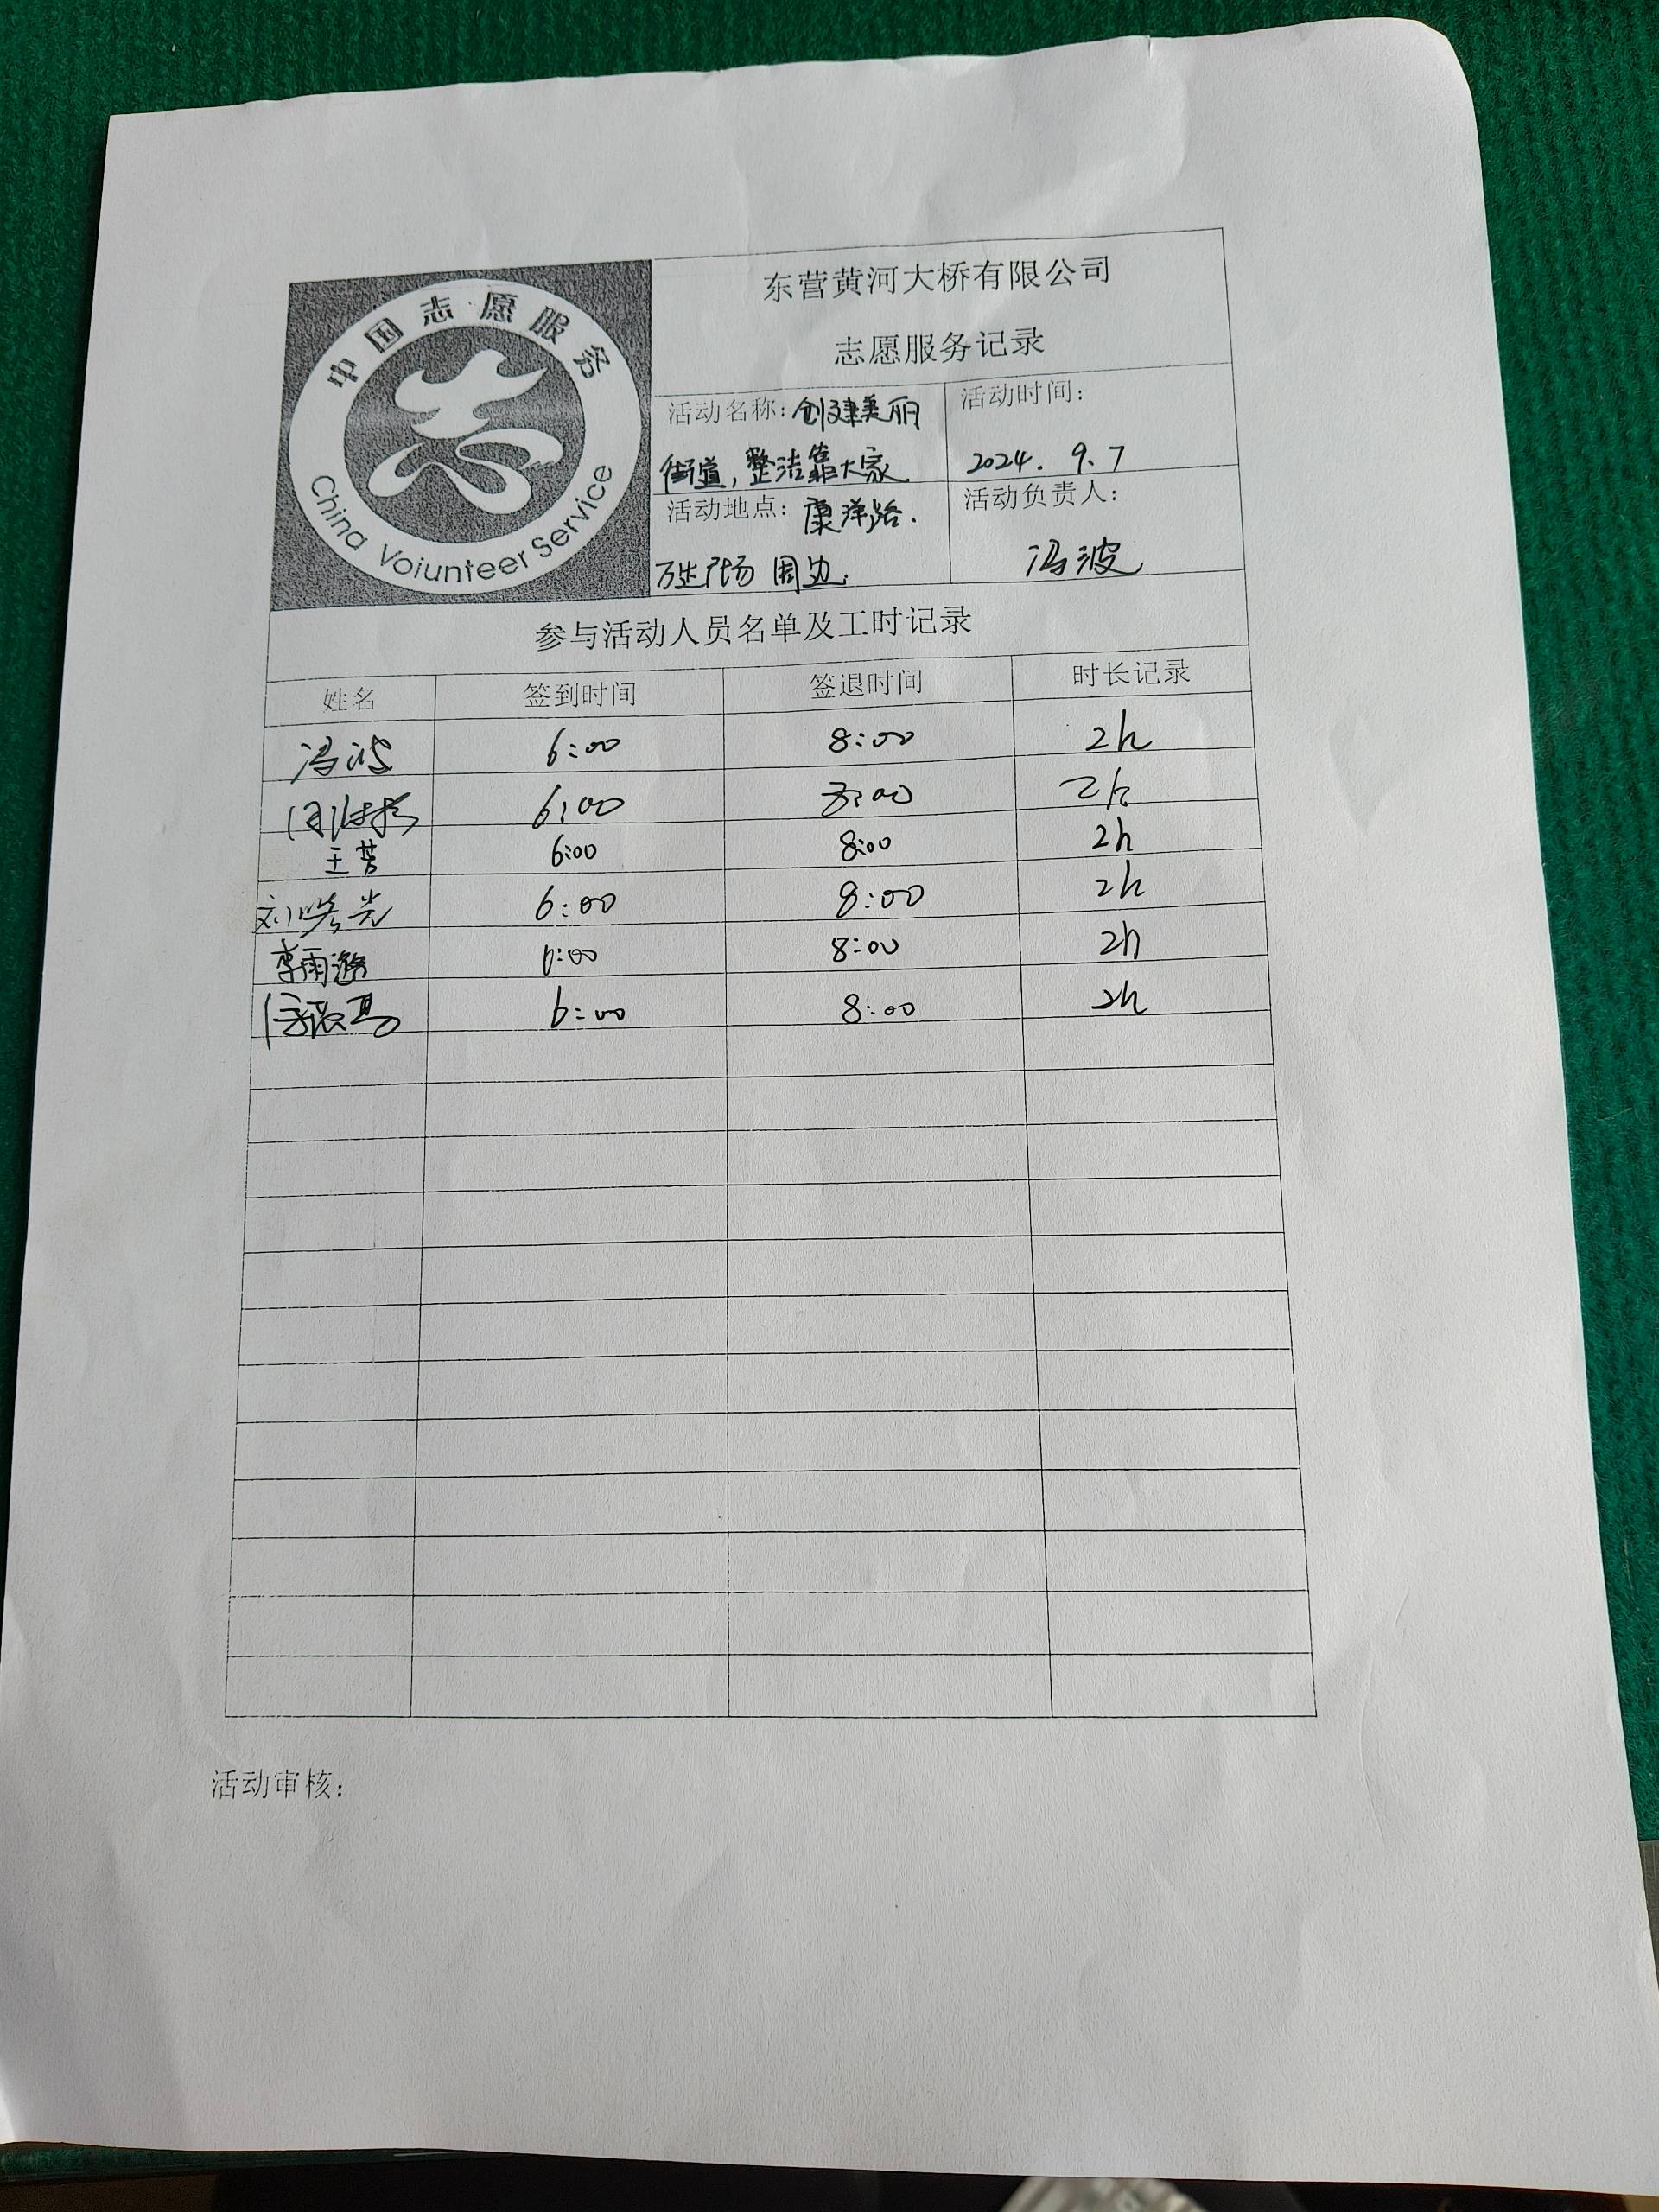 中国志愿服务
China Voiunteer Service
东营黄河大桥有限公司
志愿服务记录
活动名称：创建美丽
街道，整洁靠大家.
活动时间：
2024. 9. 7
活动地点：康洋路.
万达广场 周边.
活动负责人：
冯波
参与活动人员名单及工时记录
姓名 签到时间 签退时间 时长记录
冯波 6:00 8:00 2h
6:00 8:00 2h
王芳 6:00 8:00 2h
刘 6:00 8:00 2h
李雨 6:00 8:00 2h
6:00 8:00 2h
活动审核：